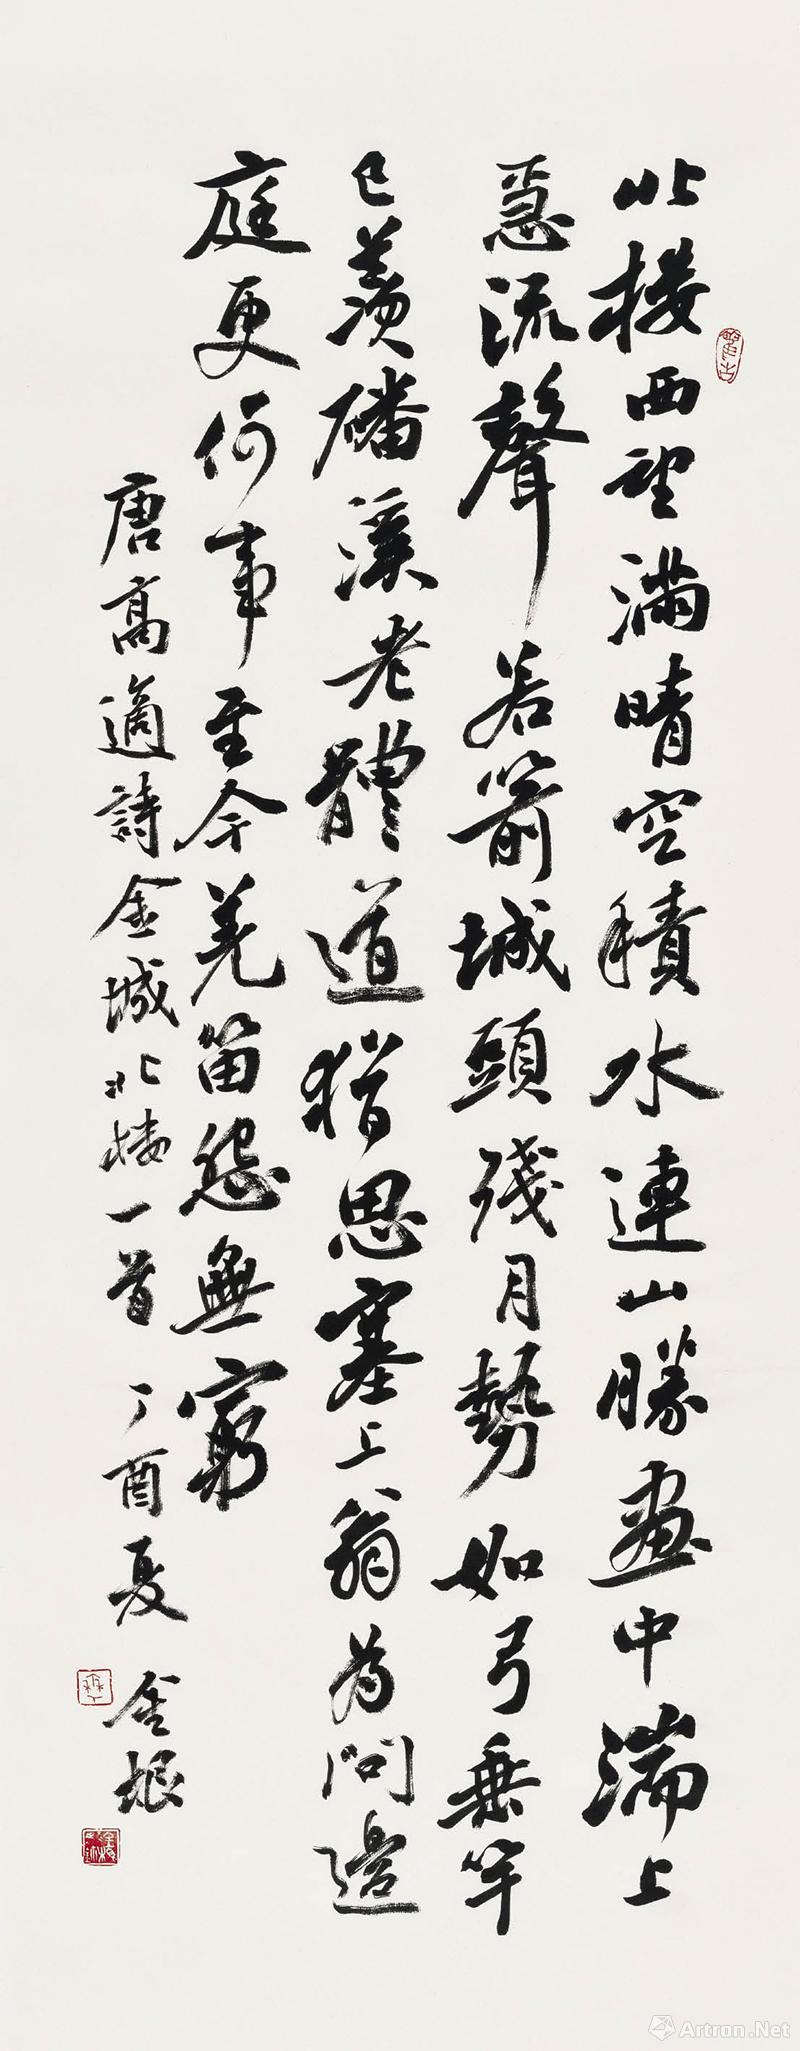 北楼西望满晴空積水連山勝畫中湍上
急流聲若箭城頭殘月勢如弓垂竿
已羨磻溪老體道猶思塞上翁為問邊
庭更何事至今羌笛怨無窮
唐高適詩金城北楼一首 丁酉夏 金根
Artron.Net